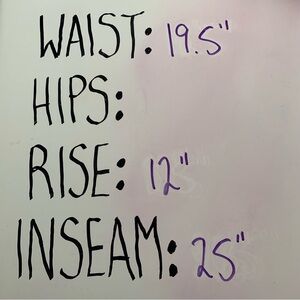 WAIST: 19.5"
HIPS:
RISE: 12"
INSEAM: 25"